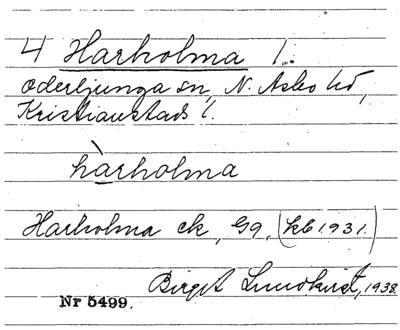 4 Harholma l.
Oderljunga sn, N. Asbo hd,
Kristianstads l.
hàrholma
Harholma ek, G9, (kb 1931.)
Birgit Lundkvist, 1938.
Nr 5499.